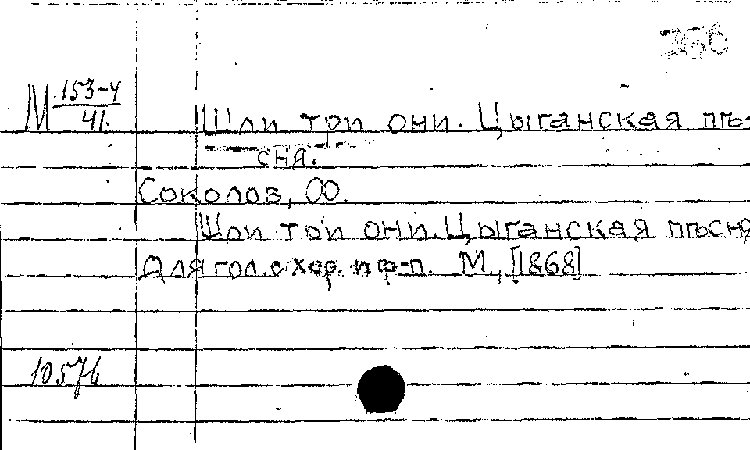 М 153-4/41.
Шли три они. Цыганская пѣ-
сня.
Соколов, Ф.
Шли три они. Цыганская пѣсня
Для гол. с хор. и ф-п. М., [1868]
10576